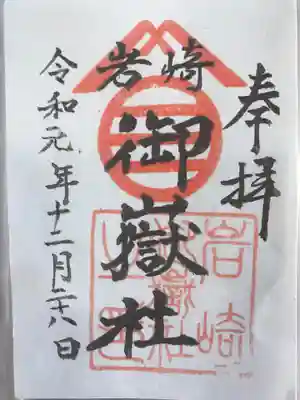 奉拝
岩崎
御嶽社
令和元年十二月二十八日
岩崎
御嶽社
之印